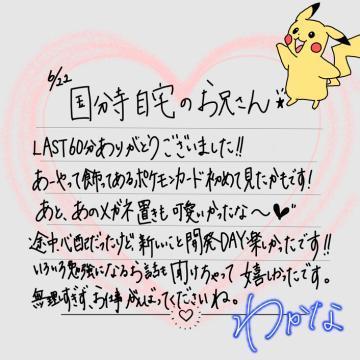 6/22
国分寺自宅のお兄さん
LAST60分ありがとうございました!!
あーやって飾ってあるポケモンカード初めて見たかもです!
あと、あのメガネ置きも可愛いかったな〜♥
途中心配だったけど、新しいこと開発DAY楽しかったです!!
いろいろ勉強になるお話も聞けちゃって嬉しかったです。
無理すぎず、お仕事がんばってくださいね。
わかな